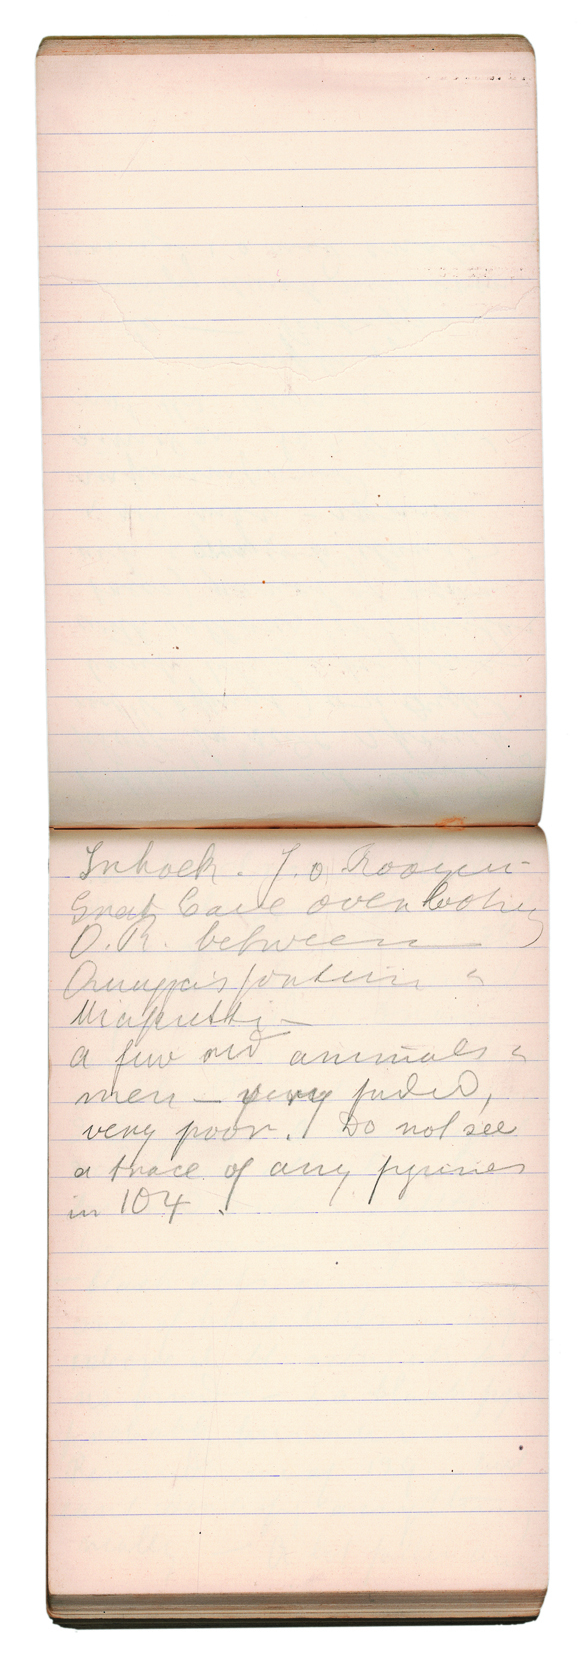 Inhoek. J. o. Rooyen -
Great Cave overlooking
O.R. between
fontein &
a few red animals &
men - very faded,
very poor. Do not see
a trace of any figures
in 104.